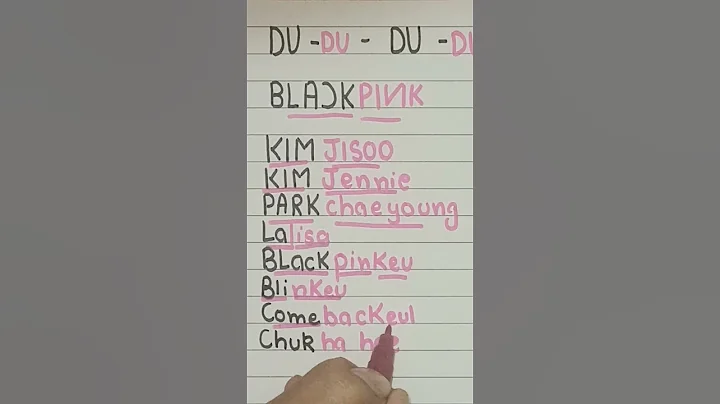 DU - DU - DU - DU
BLAƆKPIИK
KIM JISOO
KIM Jennie
PARK chaeyoung
Lalisa
BLack pinkeu
Blinkeu
Comebackeul
Chuk ha hae